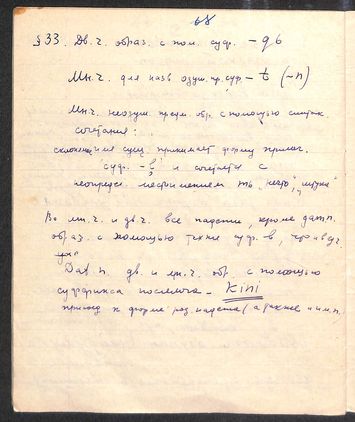 68
§ 33. Дв. ч. образ. с пом. суф. – qб
Мн. ч. для назв одуш. пр. суф – t (~n)
Мн. ч. неодуш. предм. обр. с помощью синтак.
сочетания:
имя сущ принимает форму прилаг.
суф. и сочетается с
неопредел. местоимением "нечто", "штука"
Во мн. ч. и дв. ч. все падежи, кроме дат п.
образ. с помощью тех же суф. в, что и в ед.
ч."
Дат п. дв. и мн. ч. обр. с помощью
суффикса послелога – Kini
присоед к форме род. падежа (а также и им. п.